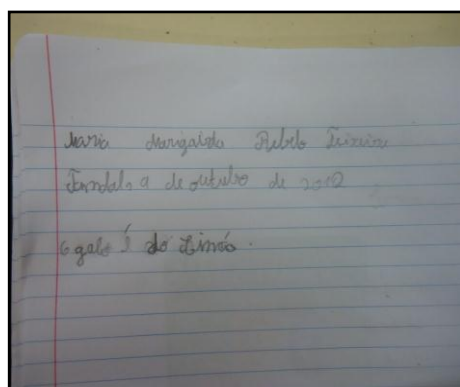 Maria Margarida Rebelo Teixeira
9 de outubro de 2012
O galo é do Simão.